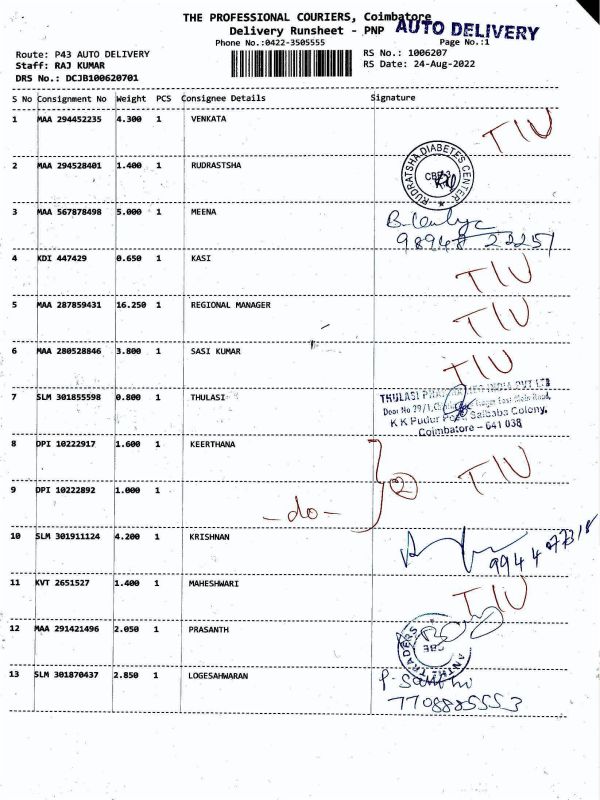 THE PROFESSIONAL COURIERS, Coimbatore
Delivery Runsheet - PNP AUTO DELIVERY
Phone No.:0422-3505555 Page No.:1
Route: P43 AUTO DELIVERY RS No.: 1006207
Staff: RAJ KUMAR RS Date: 24-Aug-2022
DRS No.: DCJB100620701
S No Consignment No Weight PCS Consignee Details Signature
1 MAA 294452235 4.300 1 VENKATA TIU
2 MAA 294528401 1.400 1 RUDRASTSHA RUDRATSHA DIABETES CENTER
3 MAA 567878498 5.000 1 MEENA
98948 22251
4 KDI 447429 0.650 1 KASI TIU
5 MAA 287859431 16.250 1 REGIONAL MANAGER TIU
6 MAA 280528846 3.800 1 SASI KUMAR TIU
7 SLM 301855598 0.800 1 THULASI THULASI INDIA PVT LTD
Door No 29/1, East Main Road,
K K Pudur Post, Saibaba Colony,
Coimbatore - 641 038
8 DPI 10222917 1.600 1 KEERTHANA 2 TIU
9 DPI 10222892 1.000 1 -do-
10 SLM 301911124 4.200 1 KRISHNAN
11 KVT 2651527 1.400 1 MAHESHWARI TIU
12 MAA 291421496 2.050 1 PRASANTH TRADERS CBE
13 SLM 301870437 2.850 1 LOGESAHWARAN
7708885553